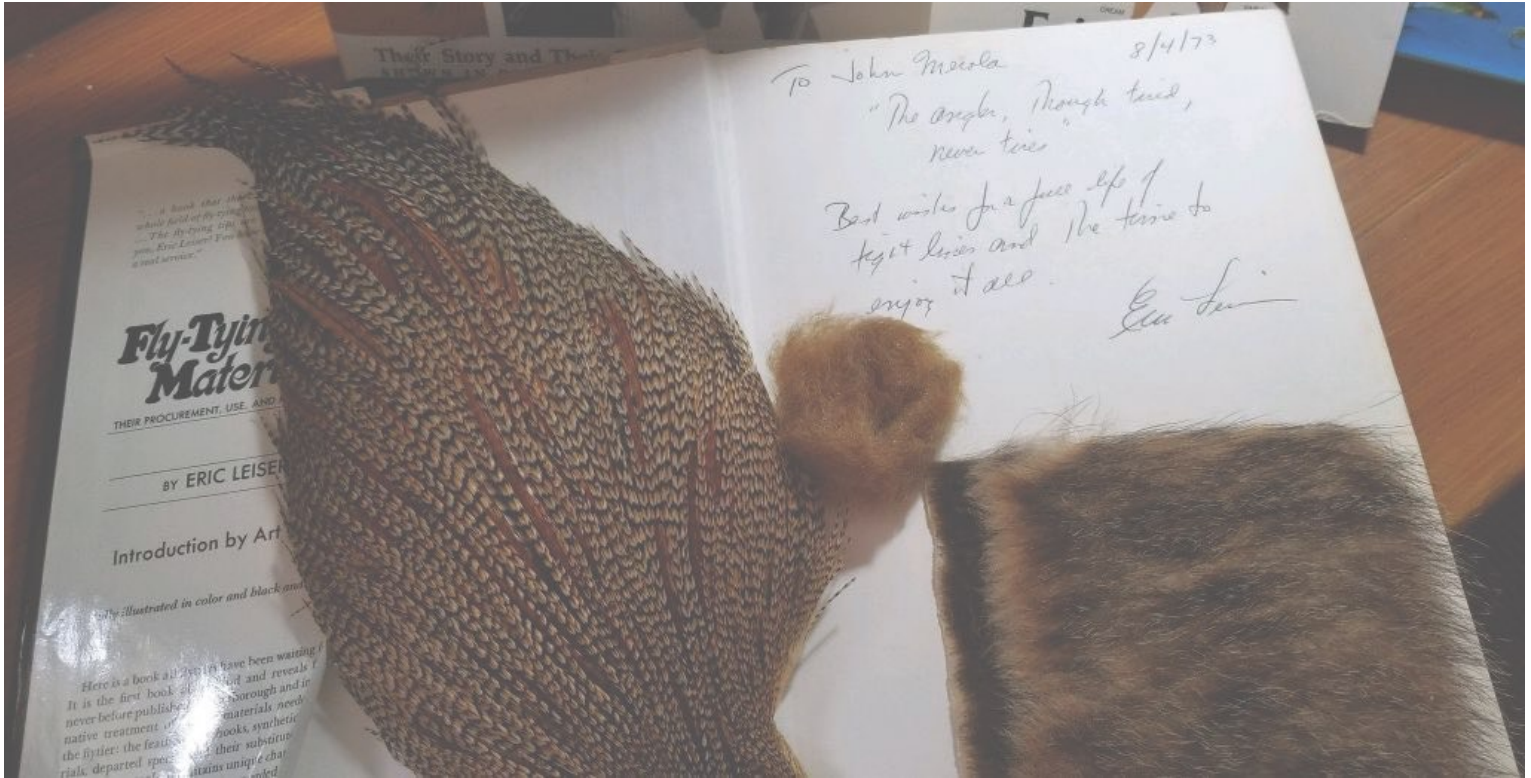 Their Story and Their
To John Merola
8/4/73
"The angler, Though tired,
never tires"
Best wishes for a full life of
tight lines and The time to
enjoy it all.
"... a book that
whole field of fly-tying
... The fly-tying
you, Eric Leiser!
a real service."
Fly-Tying
Mater
THEIR PROCUREMENT, USE, AND
BY ERIC LEISER
Introduction by Art
illustrated in color and black and
Here is a book all have been waiting
It is the first book and reveals
never before publish thorough and
native treatment materials need
the flytier: the hooks, synthetic
rials, departed their substitu
tains unique char